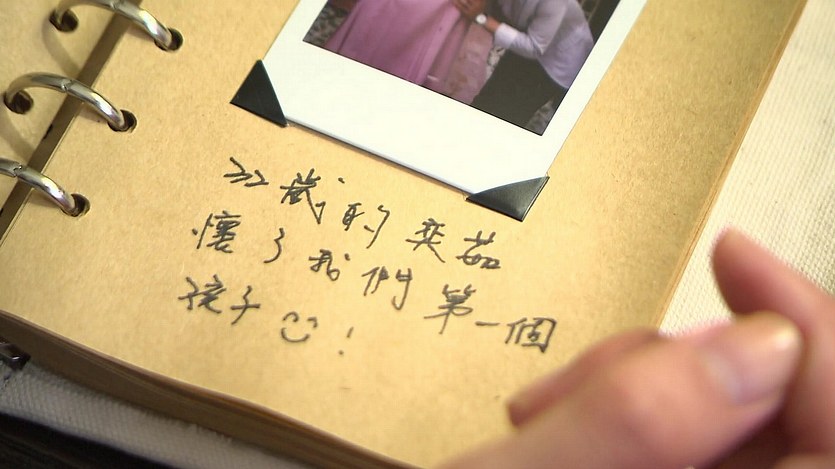 32歲的奕茹
懷了我們第一個
孩子☺!